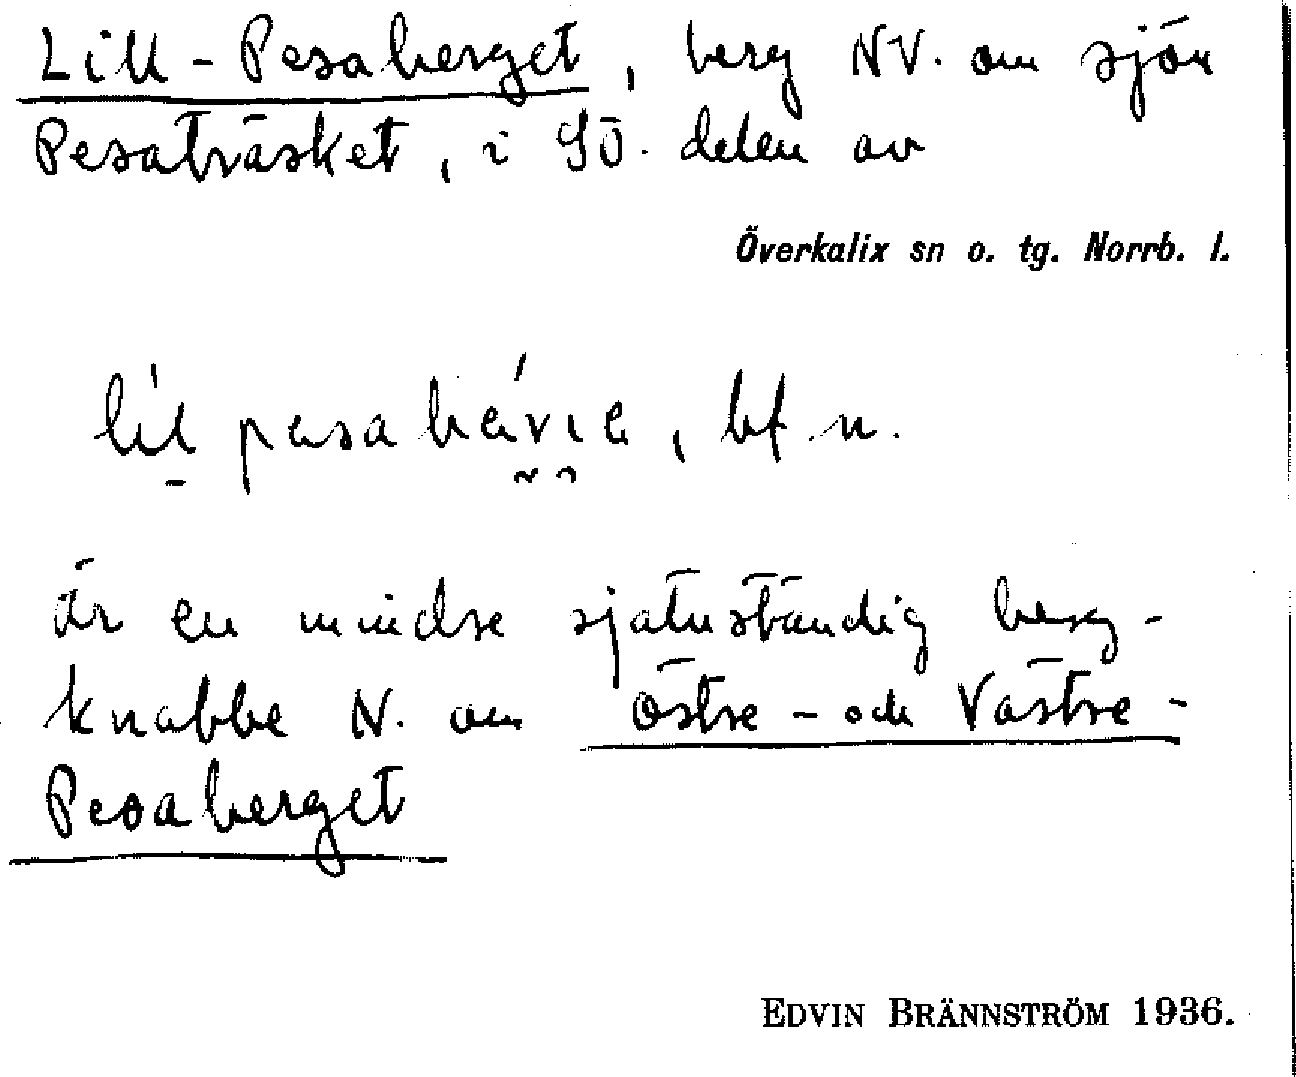 Lill-Pesaberget, berg NV. om sjön
Pesaträsket, i SÖ. delen av
Överkalix sn o. tg. Norrb. l.
bf. n.
är en mindre sjätnständig berg-
knabbe N. om Östre- och Västre-
Pesaberget
EDVIN BRÄNNSTRÖM 1936.